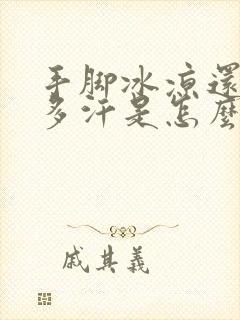 手脚冰凉還
多汗是怎麼
戚其義